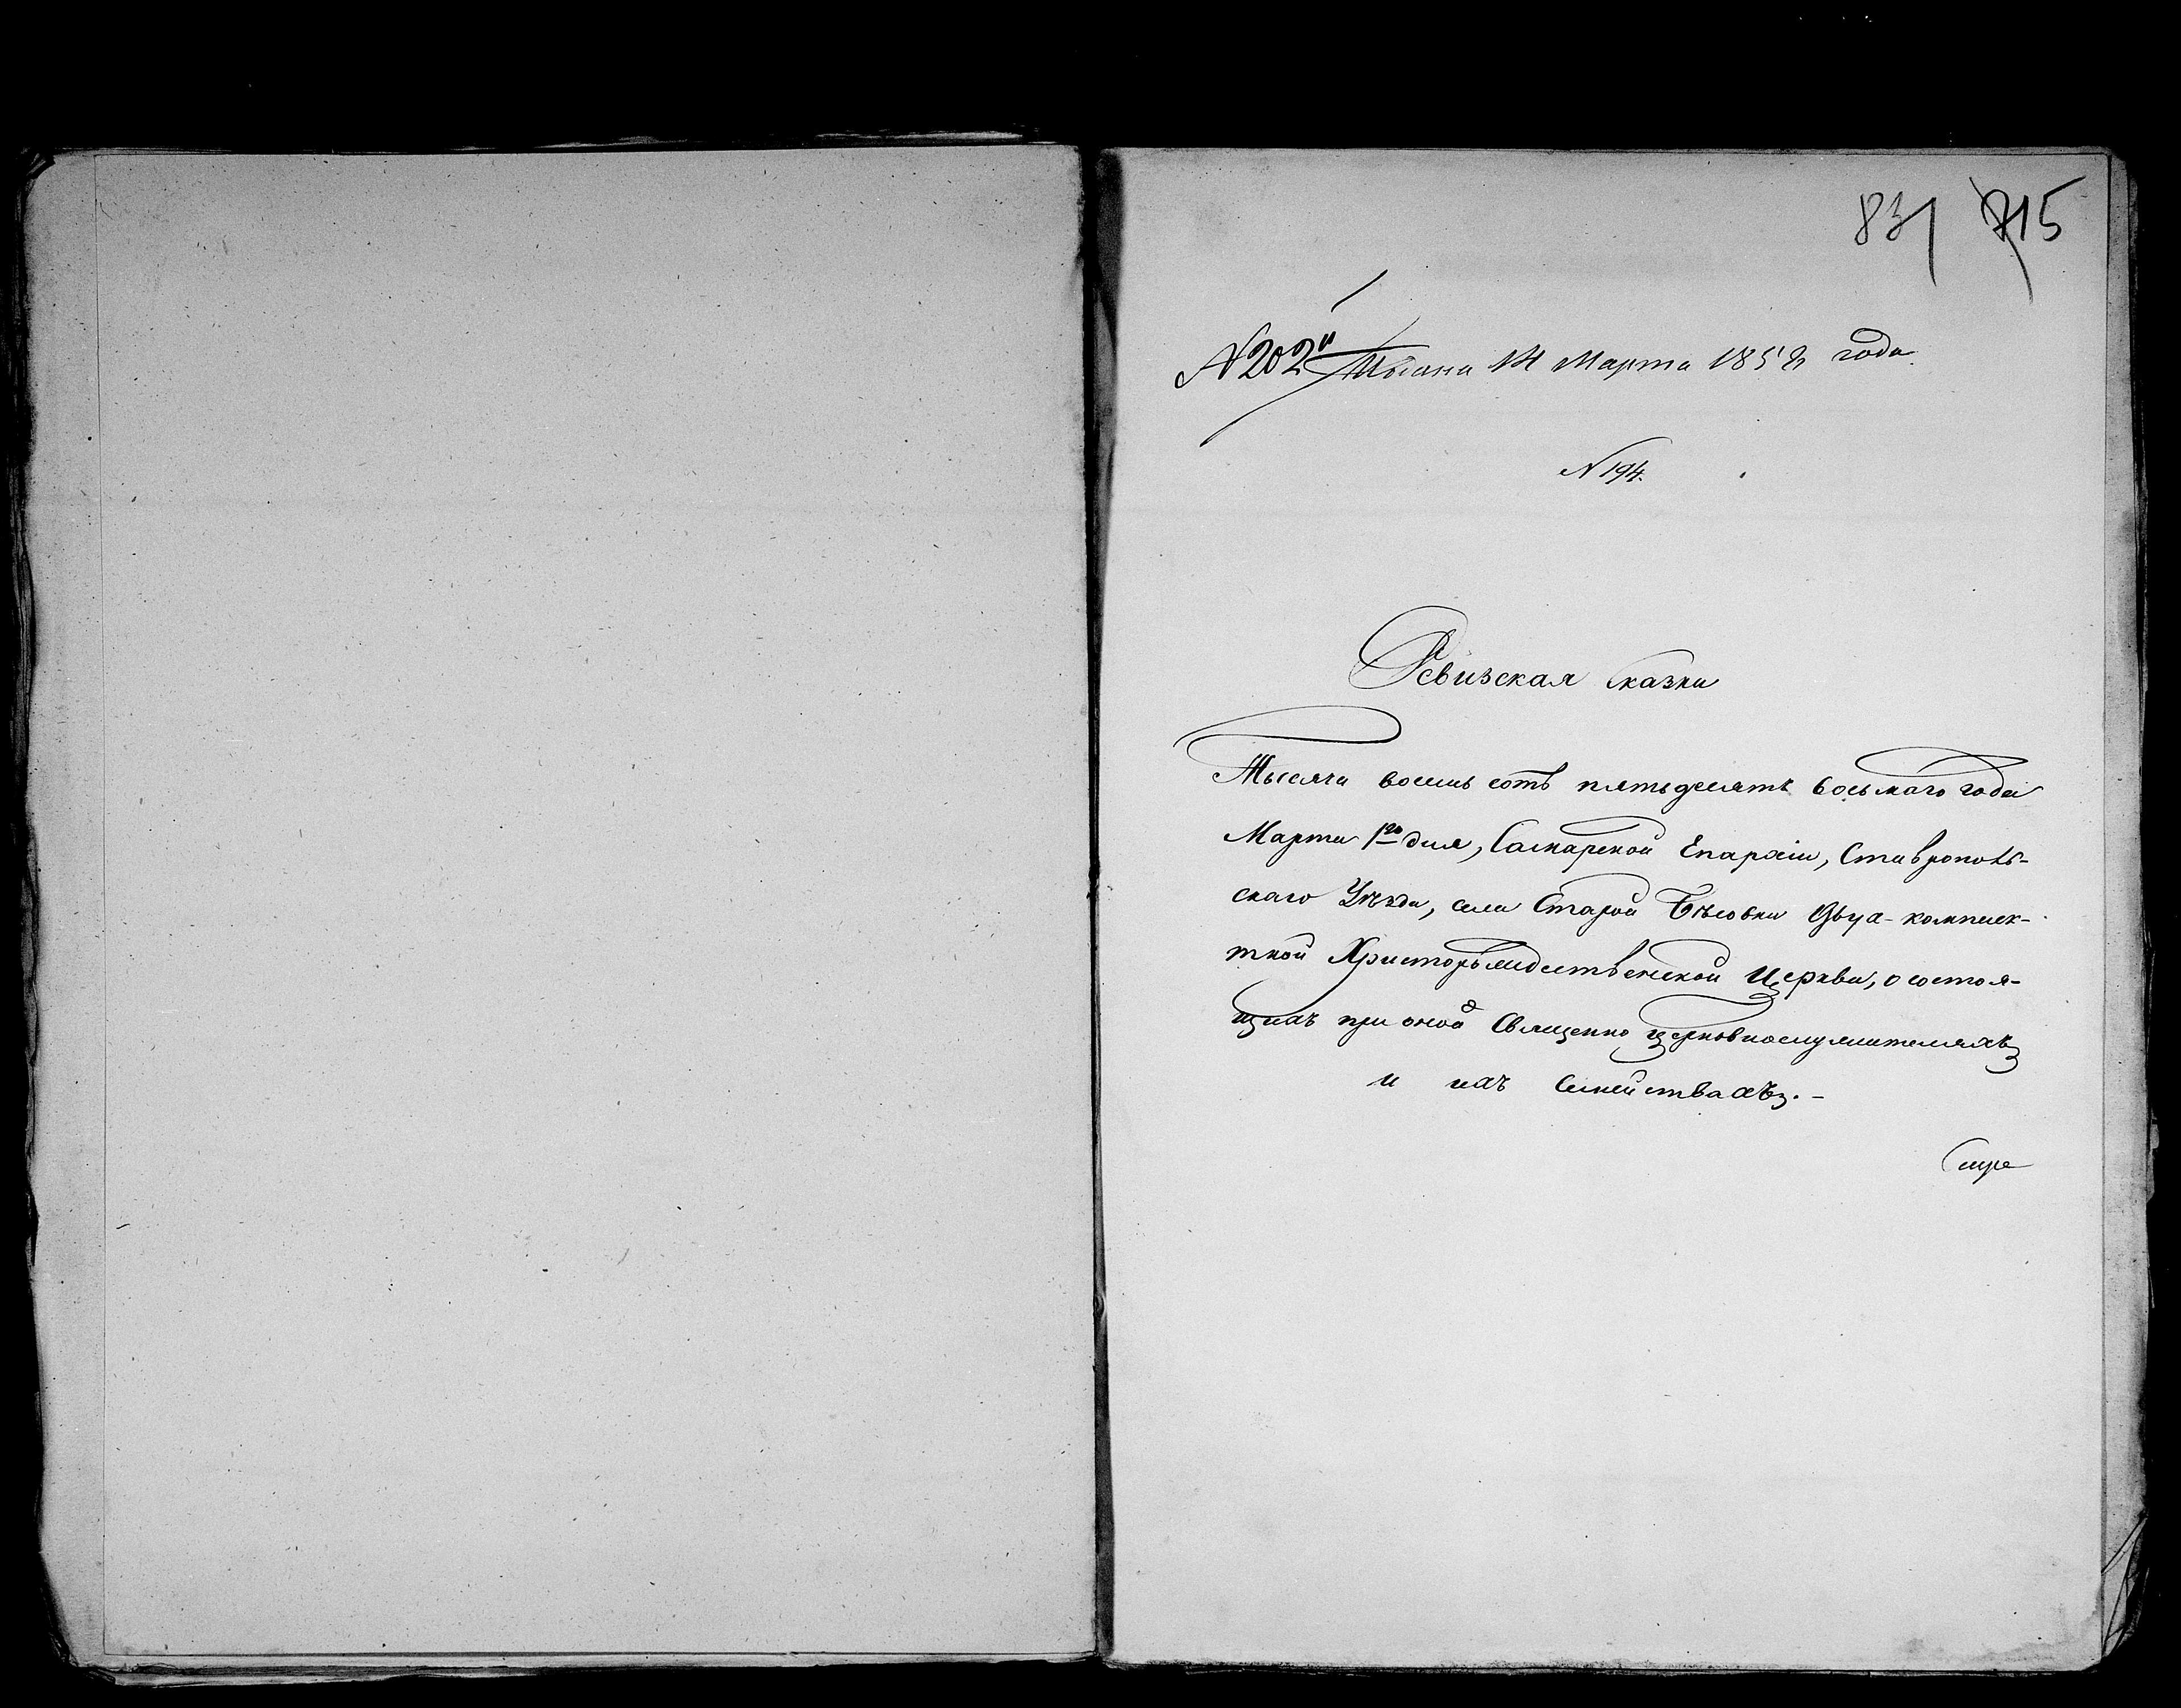 831 715
№ 202 14 Марта 1858 года
№ 194.
Ревизская сказка
Тысяча восемь сотъ пятьдесятъ восьмаго года
Марта 1го дня, Самарской Епархiи, Ставрополь-
скаго Уѣзда, села Старой Бѣсовки Двух-комплек-
тной Христорождественской Церкви, о состоя-
щихъ при оной Священно церковнослужителяхъ
и ихъ Семействахъ.-